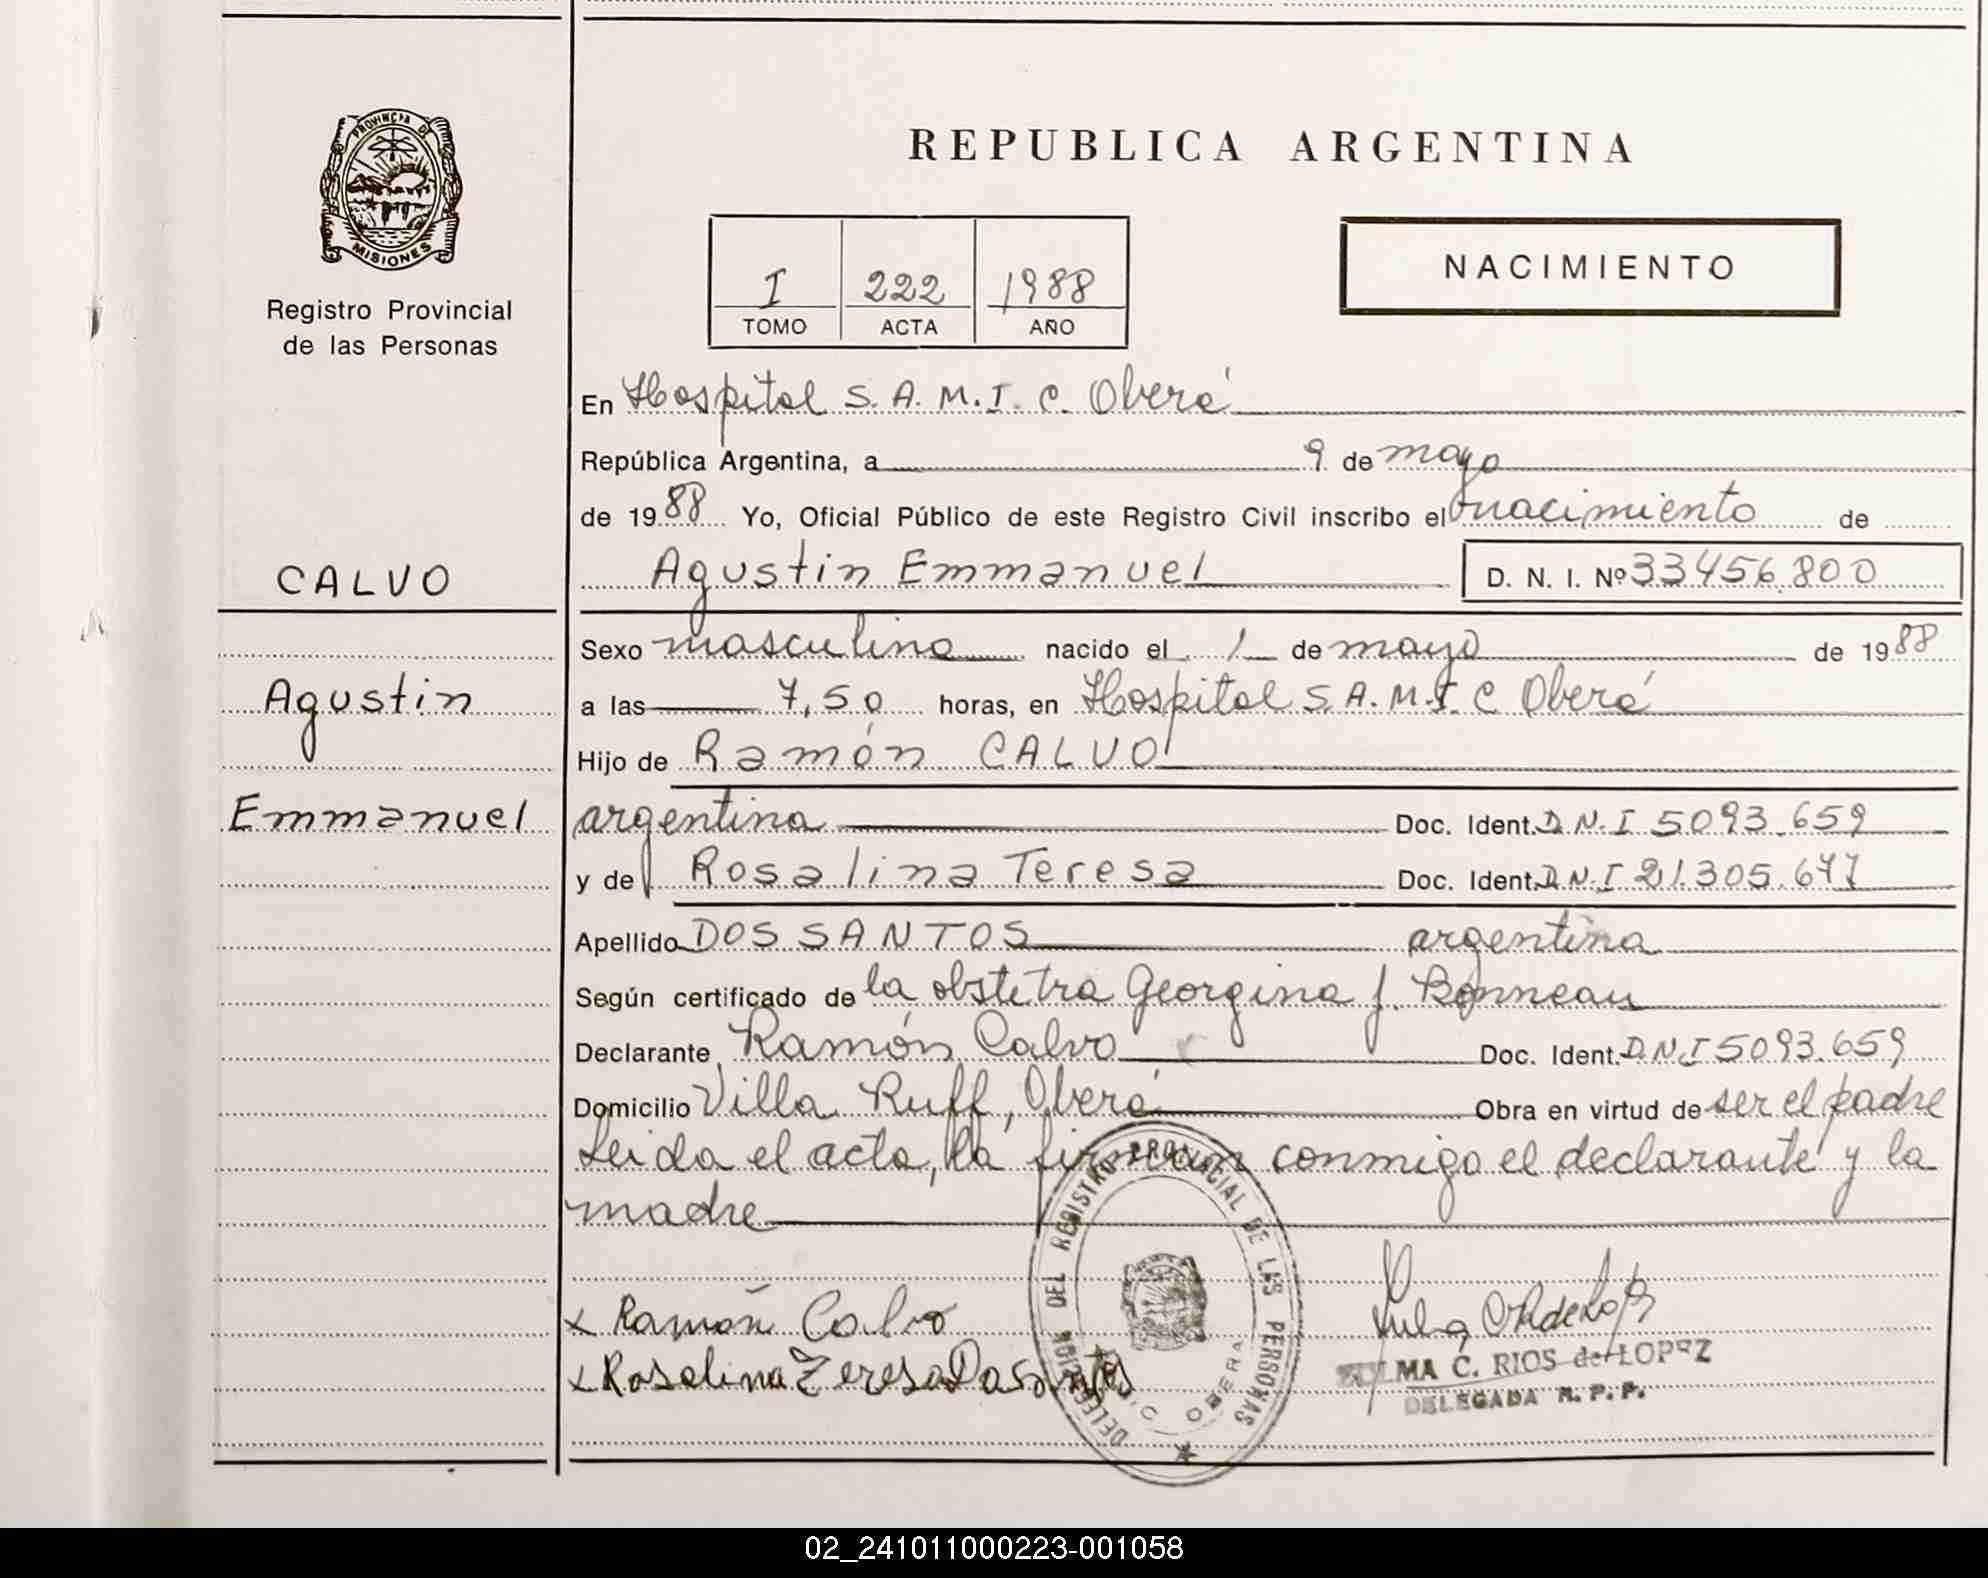 PROVINCIA DE
MISIONES
Registro Provincial
de las Personas
REPUBLICA ARGENTINA
I 222 1988
TOMO ACTA AÑO
NACIMIENTO
En Hospital S.A.M.I.C. Oberá
República Argentina, a 9 de mayo
de 1988 Yo, Oficial Público de este Registro Civil inscribo el nacimiento de
CALVO
Agustin Emmanuel D. N. I. Nº 33456.800
Sexo masculino nacido el 1 de mayo de 1988
Agustin
a las 7,50 horas, en Hospital S.A.M.I.C Oberá
Hijo de Ramón CALVO
Emmanuel
argentina Doc. Ident. D.N.I 5093.659
y de Rosalina Teresa Doc. Ident. D.N.I 21.305.677
Apellido DOS SANTOS argentina
Según certificado de la obstetra Georgina J. Bonneau
Declarante Ramón Calvo Doc. Ident. D.N.I 5093.659
Domicilio Villa Ruff, Oberá Obra en virtud de ser el padre
Leida el acta, la firman conmigo el declarante y la
madre
x Ramón Calvo
x Rosalina Teresa Dos Santos
DELEGACION DEL REGISTRO PROVINCIAL DE LAS PERSONAS
OBERA
ZULMA C. RIOS de LOPEZ
DELEGADA R. P. P.
02_241011000223-001058